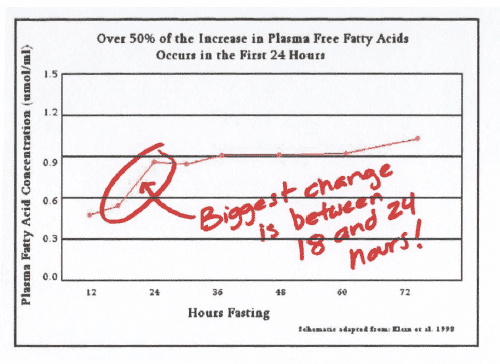 Over 50% of the Increase in Plasma Free Fatty Acids
Occurs in the First 24 Hours
Plasma Fatty Acid Concentration (umol/ml)
1.5
1.2
0.9
0.6
0.3
0.0
Biggest change
is between
18 and 24
hours!
12 24 36 48 60 72
Hours Fasting
Schematic adapted from: Klein et al. 1998